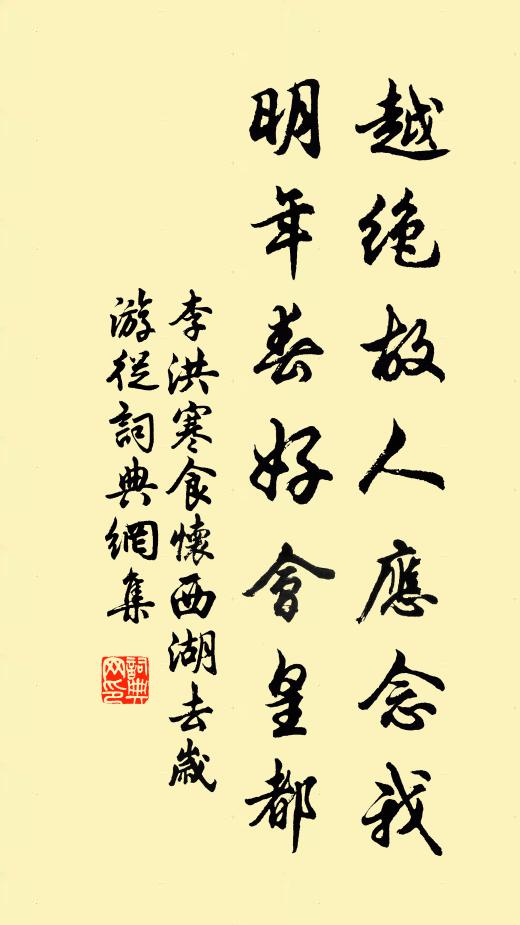 越絶故人應念我
明年春好會皇都
李洪寒食懷西湖去歲
游從詞典網集
詞典
网印